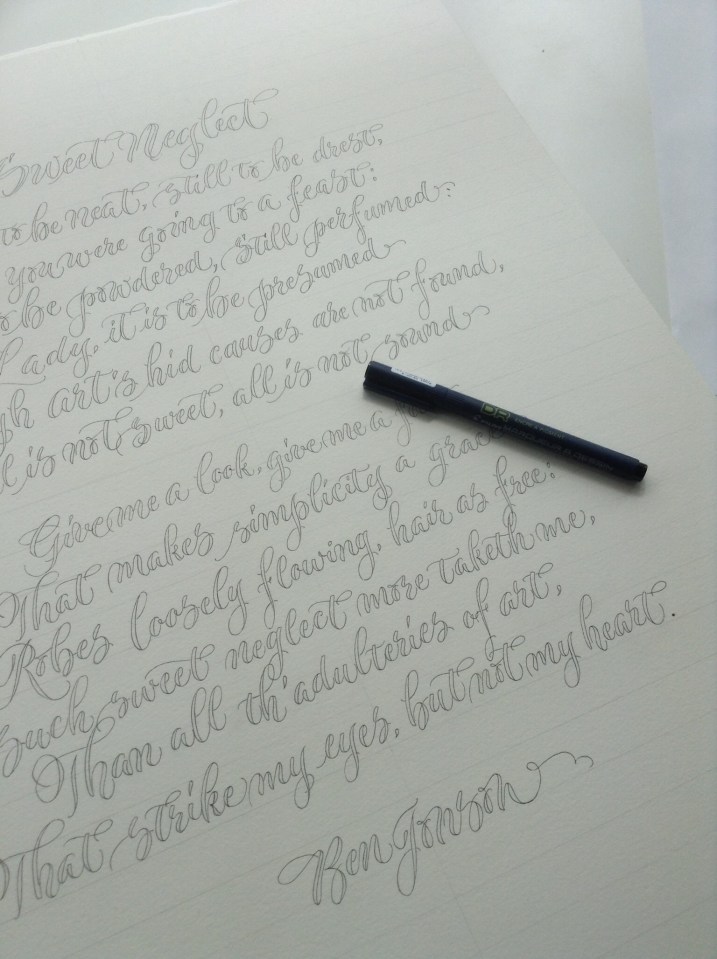 Sweet Neglect
to be neat, still to be drest,
you were going to a feast:
be powdered, still perfumed:
Lady, it is to be presumed
art's hid causes are not found,
is not sweet, all is not sound
Give me a look, give me a
That makes simplicity a grace
Robes loosely flowing, hair as free:
Such sweet neglect more taketh me,
Than all th' adulteries of art,
That strike my eyes, but not my heart.
Ben Jonson